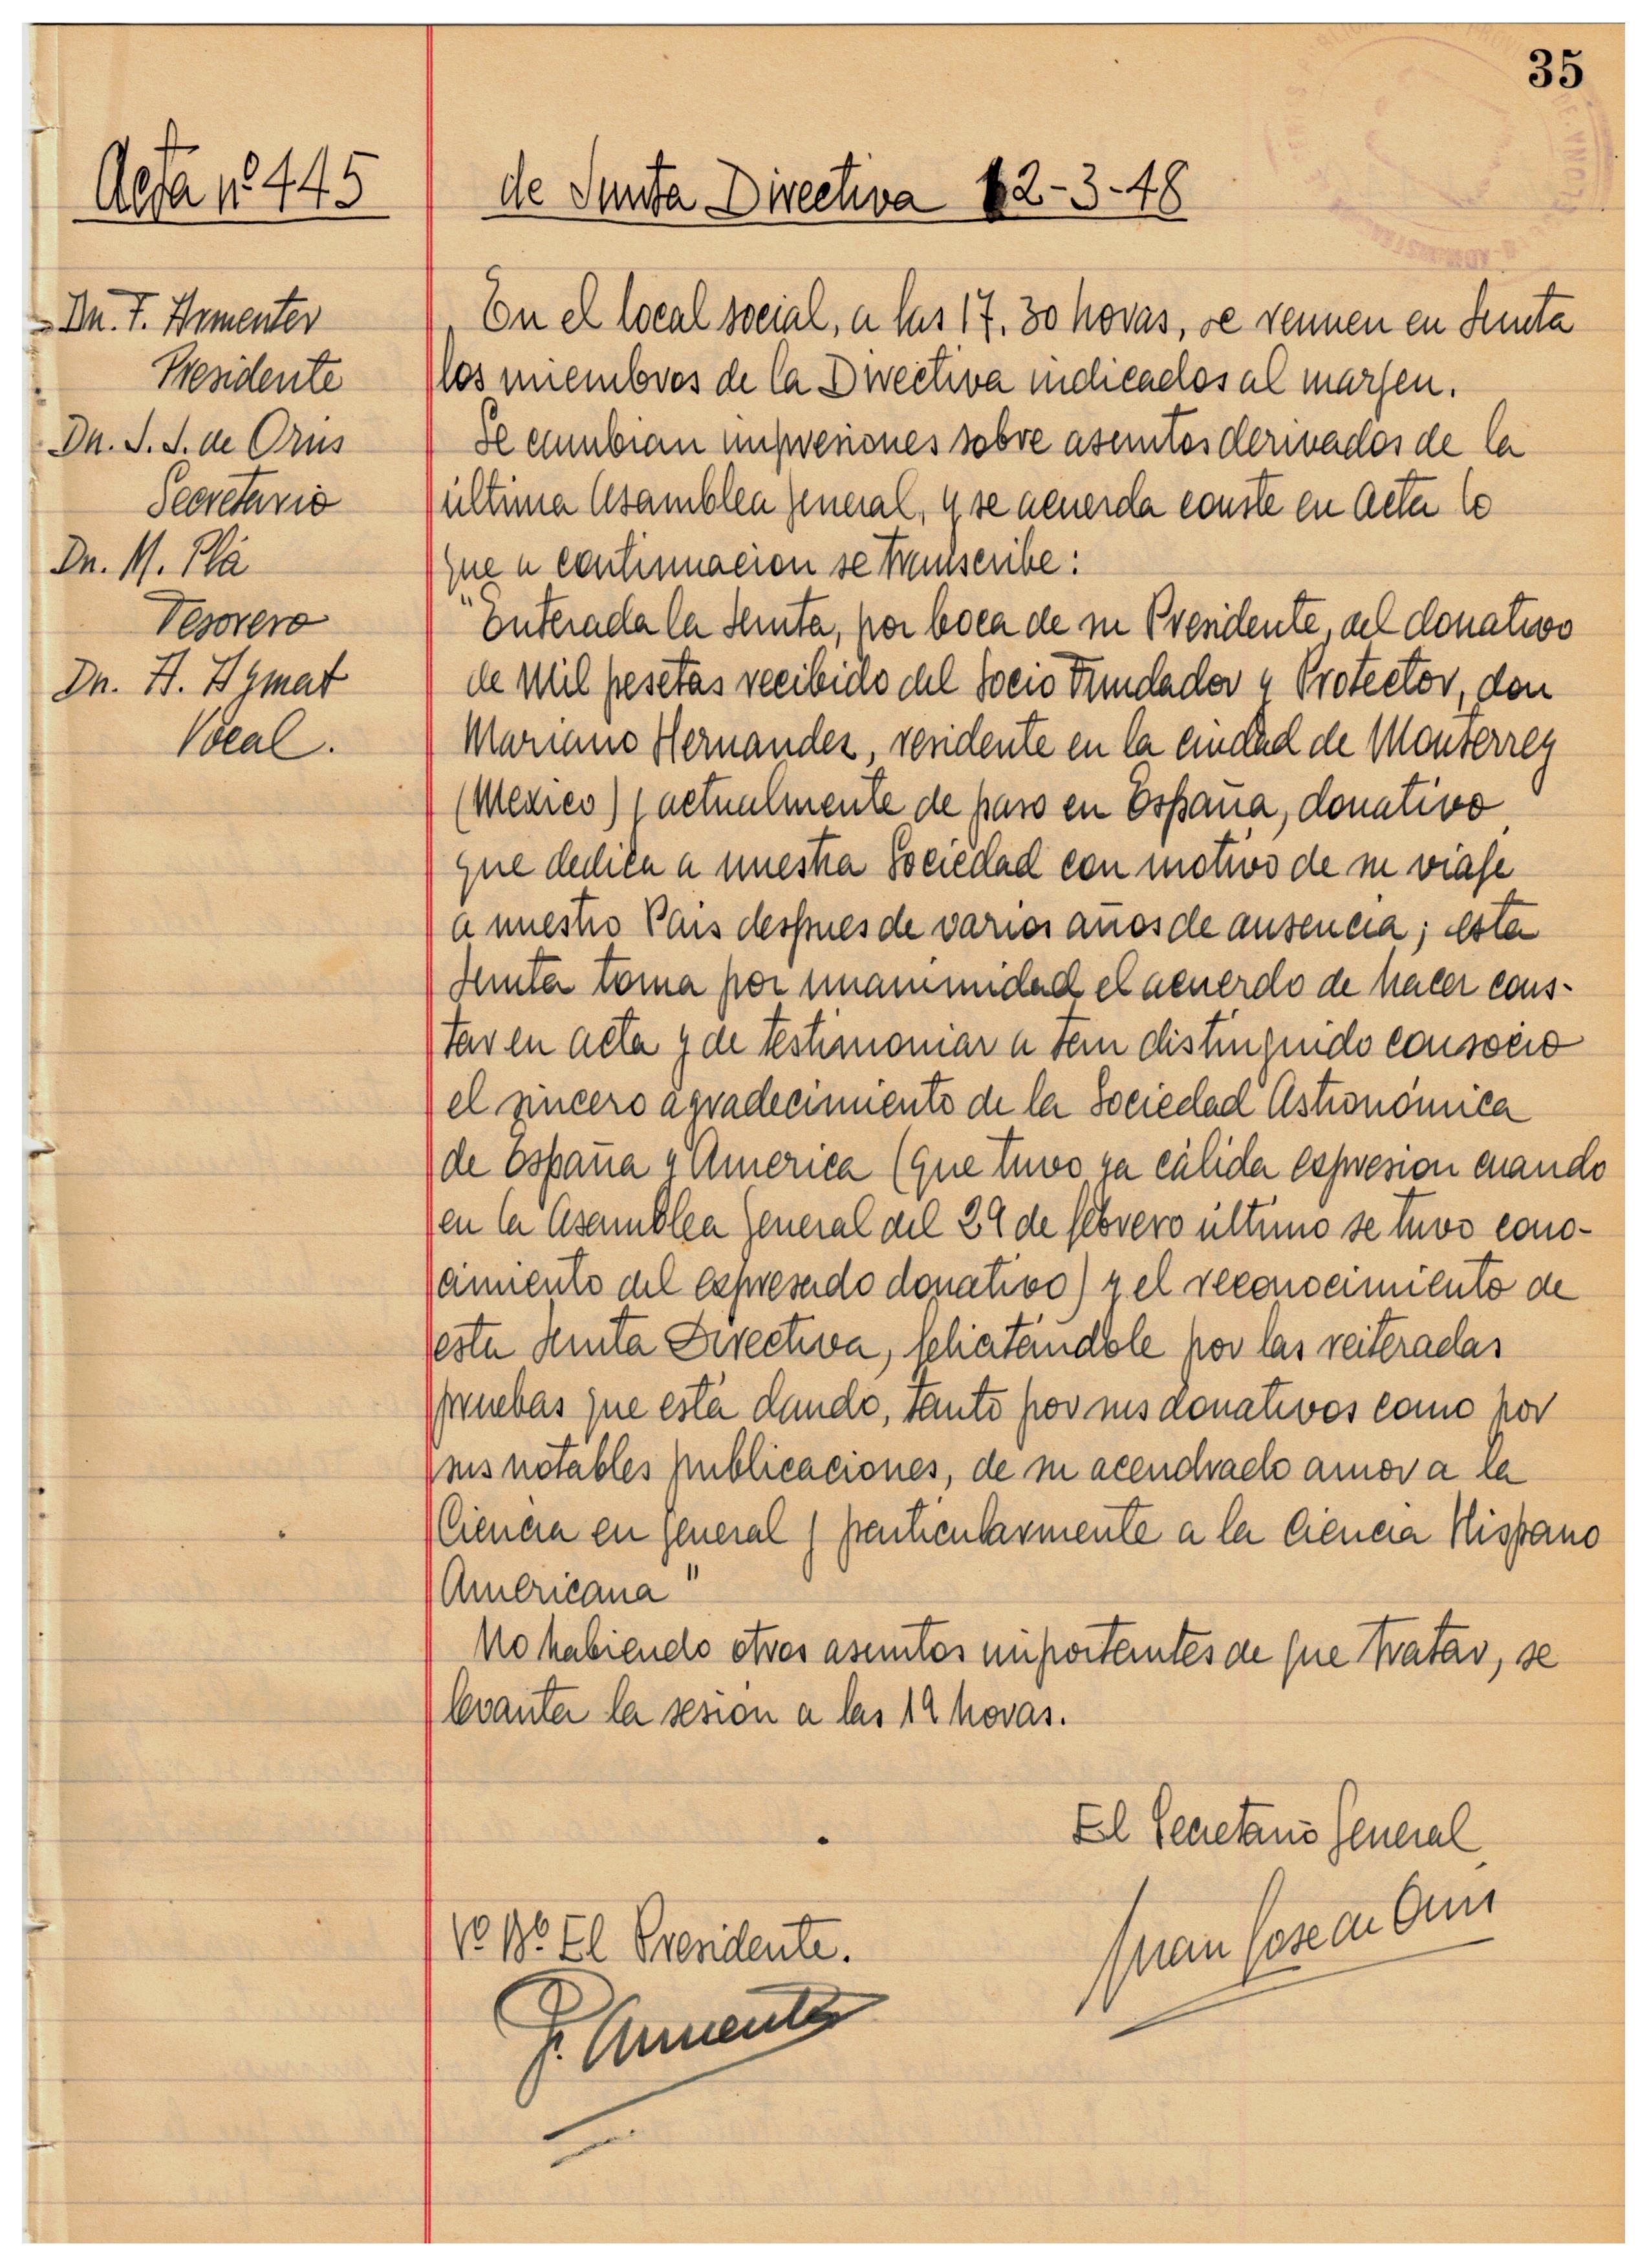 35
Acta nº 445
de Junta Directiva 12-3-48
Dn. F. Armenter
Presidente
Dn. J. J. de Orús
Secretario
Dn. M. Plá
Tesorero
Dn. A. Aymat
Vocal.
En el local social, a las 17.30 horas, se reunen en Junta
los miembros de la Directiva indicados al margen.
Se cambian impresiones sobre asuntos derivados de la
última Asamblea general, y se acuerda conste en Acta lo
que a continuacion se transcribe:
"Enterada la Junta, por boca de su Presidente, del donativo
de mil pesetas recibido del Socio Fundador y Protector, don
Mariano Hernandez, residente en la ciudad de Monterrey
(Mexico) y actualmente de paso en España, donativo
que dedica a nuestra Sociedad con motivo de su viaje
a nuestro Pais despues de varios años de ausencia; esta
Junta toma por unanimidad el acuerdo de hacer cons-
tar en acta y de testimoniar a tan distinguido consocio
el sincero agradecimiento de la Sociedad Astronómica
de España y America (que tuvo ya cálida expresion cuando
en la Asamblea general del 29 de febrero último se tuvo cono-
cimiento del expresado donativo) y el reconocimiento de
esta Junta Directiva, felicitándole por las reiteradas
pruebas que está dando, tanto por sus donativos como por
sus notables publicaciones, de su acendrado amor a la
Ciencia en general y particularmente a la Ciencia Hispano
Americana"
No habiendo otros asuntos importantes de que tratar, se
levanta la sesión a las 19 horas.
El Secretario General
Juan José de Orús
Vº Bº El Presidente.
F. Armenter